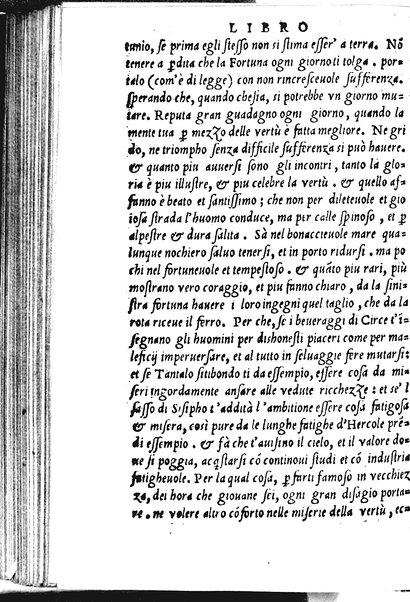 LIBRO
tunio, se prima egli stesso non si stima esser' a terra. Nõ
tenere a ꝑdita che la Fortuna ogni giorno ti tolga . por-
talo (com'è di legge) con non rincresceuole sufferenza.
sperando che, quando chesia, si potrebbe vn giorno mu-
tare. Reputa gran guadagno ogni giorno, quando la
mente tua ꝑ mezzo delle vertù è fatta megliore. Ne gri
do, ne triompho senza difficile sufferenza si può hauere.
& quanto piu auuersi sono gli incontri, tanto la glo-
ria è piu illustre, & piu celebre la vertù. & quello af-
fanno è beato et santissimo; che non per dileteuole et gio
iosa strada l'huomo conduce, ma per calle spinoso, et ꝑ
alpestre & dura salita. Sà nel bonacceuole mare qua-
lunque nochiero saluo tenersi, et in porto ridursi. ma po
chi nel fortuneuole et tempestoso. & quãto piu rari, più
mostrano vero coraggio, et piu fanno chiaro, da la sini-
stra fortuna hauere i loro ingegni quel taglio, che da la
rota riceue il ferro. Per che, se i beueraggi di Circe t'i-
segnano gli huomini per dishonesti piaceri come per ma-
leficij imperuersare, et al tutto in seluaggie fere mutarsi:
et se Tantalo sitibondo ti da essempio, essere cosa da mi-
seri ingordamente ansare alle vedute ricchezze: et se'l
sasso di Sisipho t'addità l'ambitione essere cosa fatigosa
& misera, così pure da le lunghe fatighe d'Hercole prẽ-
di essempio. & fà che t'auisino il cielo, et il valore do-
ue si poggia, acq̃starsi có continoui studi et có industria
fatigheuole. Per la qual cosa, ꝑ farti famoso in vecchiez
za, dei hora che giouane sei, ogni gran disagio porta-
re. ne volere altro cóforto nelle miserie della vertù, ec-